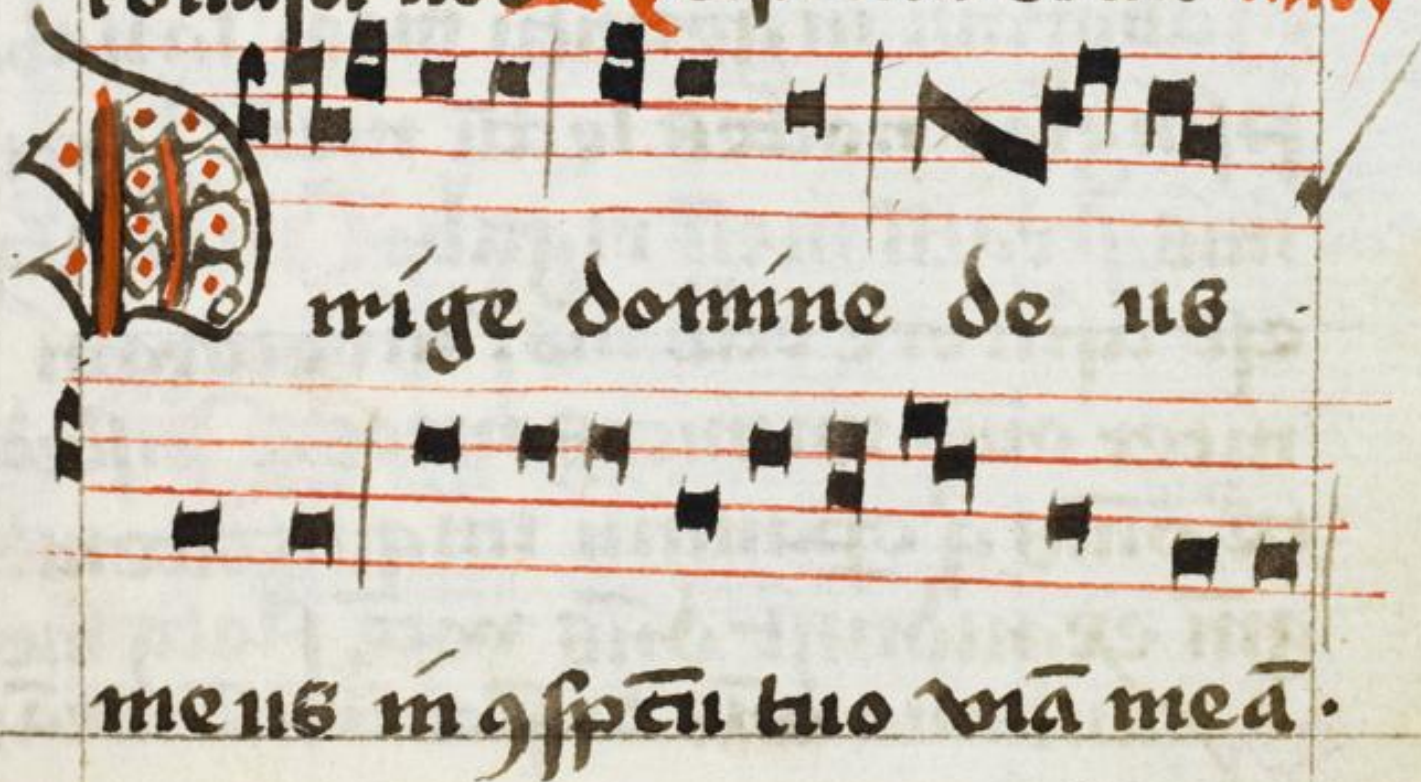 Dirige domine de us
meus in ꝯspc̄tu tuo viā meā.